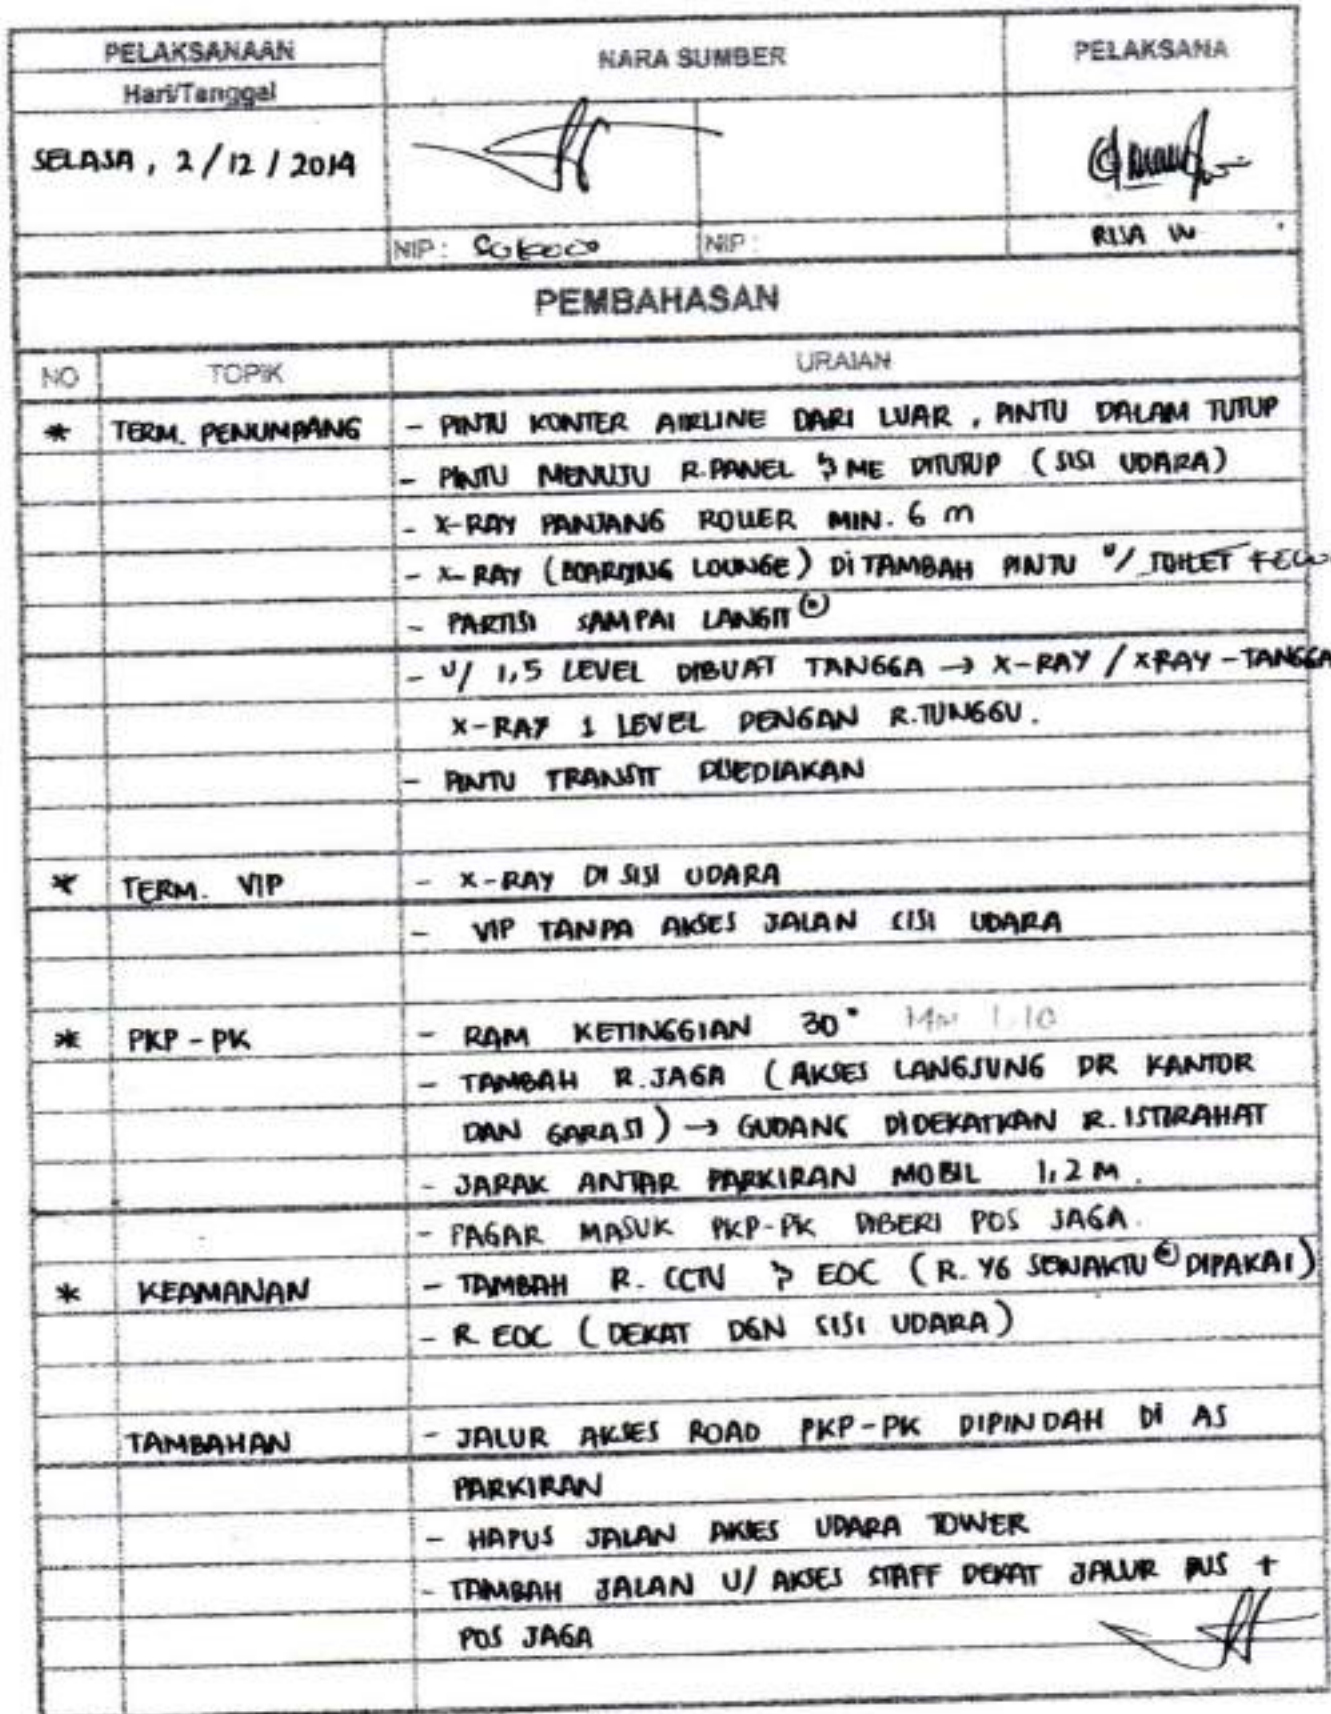 PELAKSANAAN
NARA SUMBER
PELAKSANA
Hari/Tanggal
SELASA, 2/12/2014
NIP:
NIP:
RISA W
PEMBAHASAN
NO TOPIK URAIAN
* TERM. PENUMPANG - PINTU KONTER AIRLINE DARI LUAR, PINTU DALAM TUTUP
- PINTU MENUJU R.PANEL ME DITUTUP (SISI UDARA)
- X-RAY PANJANG ROLLER MIN. 6 m
- X-RAY (BOARDING LOUNGE) DITAMBAH PINTU U/ TOILET
- PARTISI SAMPAI LANGIT²
- U/ 1,5 LEVEL DIBUAT TANGGA → X-RAY / XRAY-TANGGA
X-RAY 1 LEVEL DENGAN R.TUNGGU.
- PINTU TRANSIT DISEDIAKAN
* TERM. VIP - X-RAY DI SISI UDARA
- VIP TANPA AKSES JALAN SISI UDARA
* PKP-PK - RAM KETINGGIAN 30° 1:10
- TAMBAH R.JAGA (AKSES LANGSUNG DR KANTOR
DAN GARASI) → GUDANG DIDEKATKAN R.ISTIRAHAT
- JARAK ANTAR PARKIRAN MOBIL 1,2 M.
- PAGAR MASUK PKP-PK DIBERI POS JAGA.
* KEAMANAN - TAMBAH R. CCTV EOC (R. YG SEWAKTU² DIPAKAI)
- R EOC (DEKAT DGN SISI UDARA)
TAMBAHAN - JALUR AKSES ROAD PKP-PK DIPINDAH DI AS
PARKIRAN
- HAPUS JALAN AKSES UDARA TOWER
- TAMBAH JALAN U/ AKSES STAFF DEKAT JALUR BUS +
POS JAGA